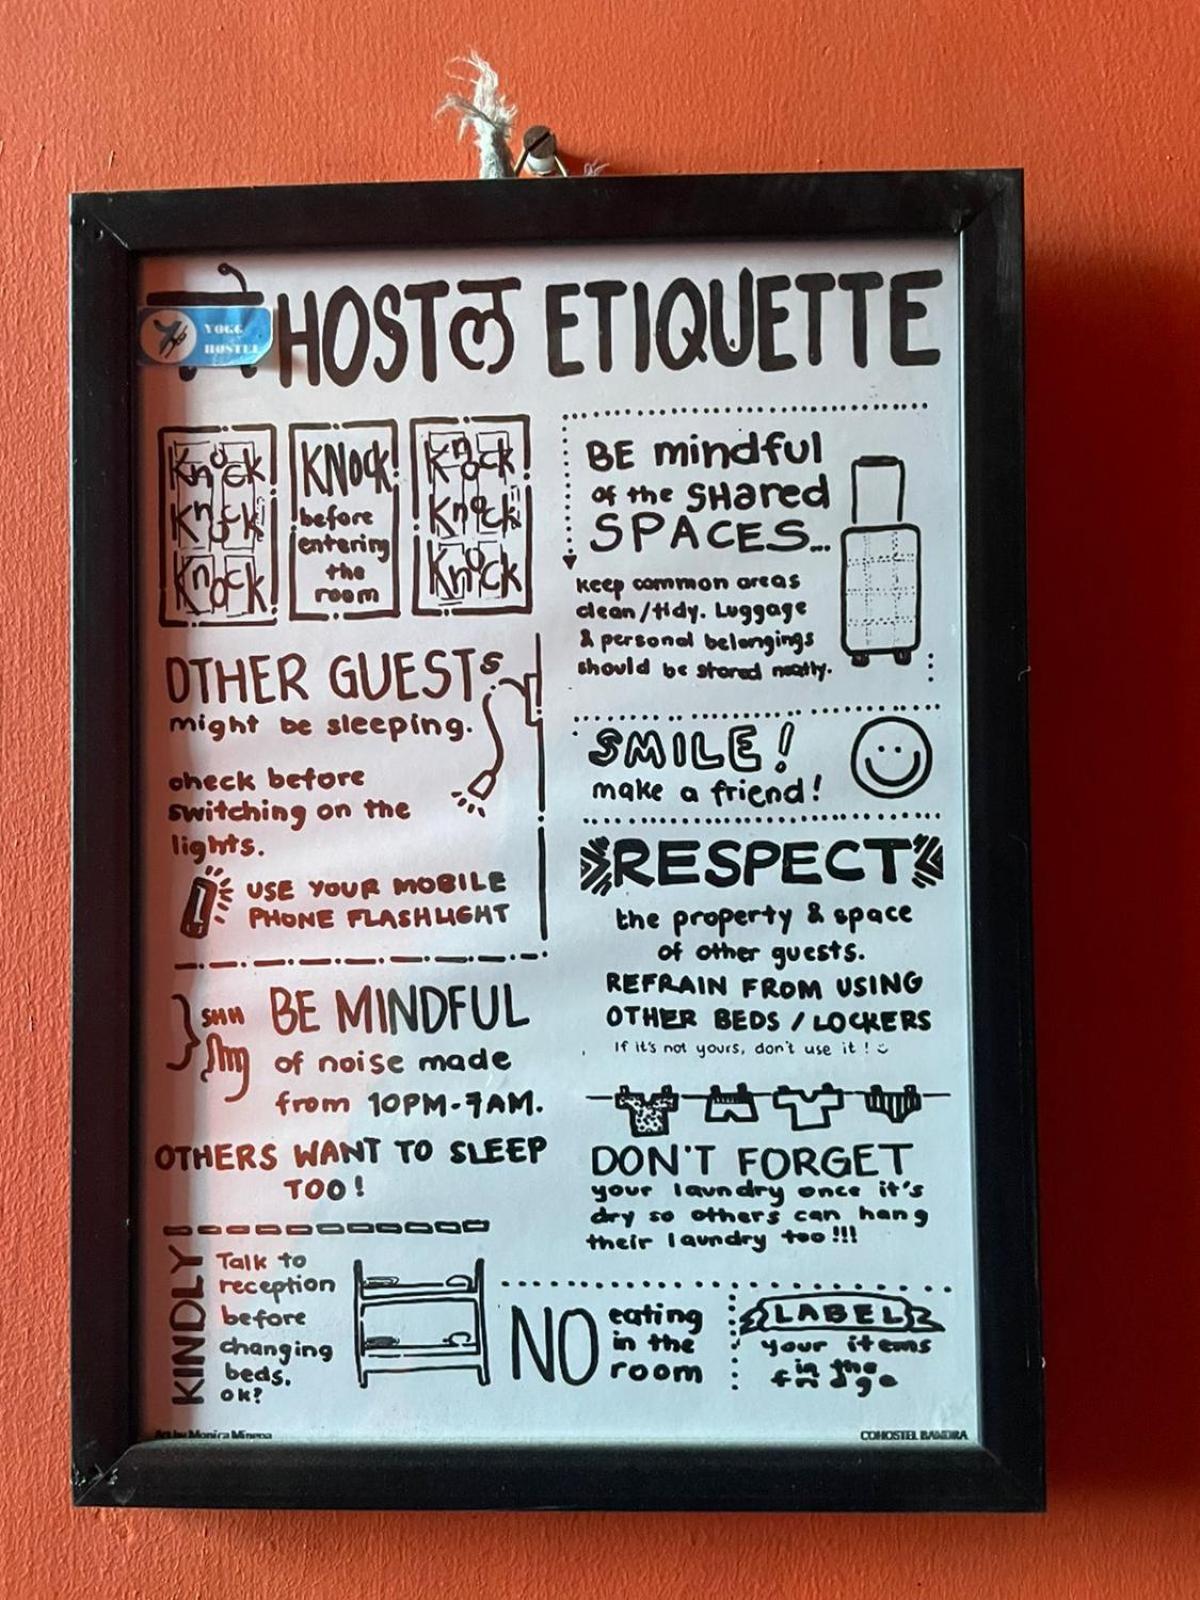 HOSTल ETIQUETTE
YOGG
HOSTEL
Knock
Knock
Knock
KNock!
before
entering
the
room
Knock
Knock
Knock
OTHER GUESTS
might be sleeping.
check before
switching on the
lights.
USE YOUR MOBILE
PHONE FLASHLIGHT
SHH
BE MINDFUL
of noise made
from 10PM-7AM.
OTHERS WANT TO SLEEP
TOO!
KINDLY
Talk to
reception
before
changing
beds.
ok?
BE mindful
of the SHared
SPACES...
keep common areas
clean/tidy. Luggage
& personal belongings
should be stored neatly.
SMILE!
make a friend!
RESPECT
the property & space
of other guests.
REFRAIN FROM USING
OTHER BEDS / LOCKERS
If it's not yours, don't use it!
DON'T FORGET
your laundry once it's
dry so others can hang
their laundry too!!!
NO
eating
in the
room
LABEL
your items
in the
fridge
Art by Monica
COHOSTEL BANDRA